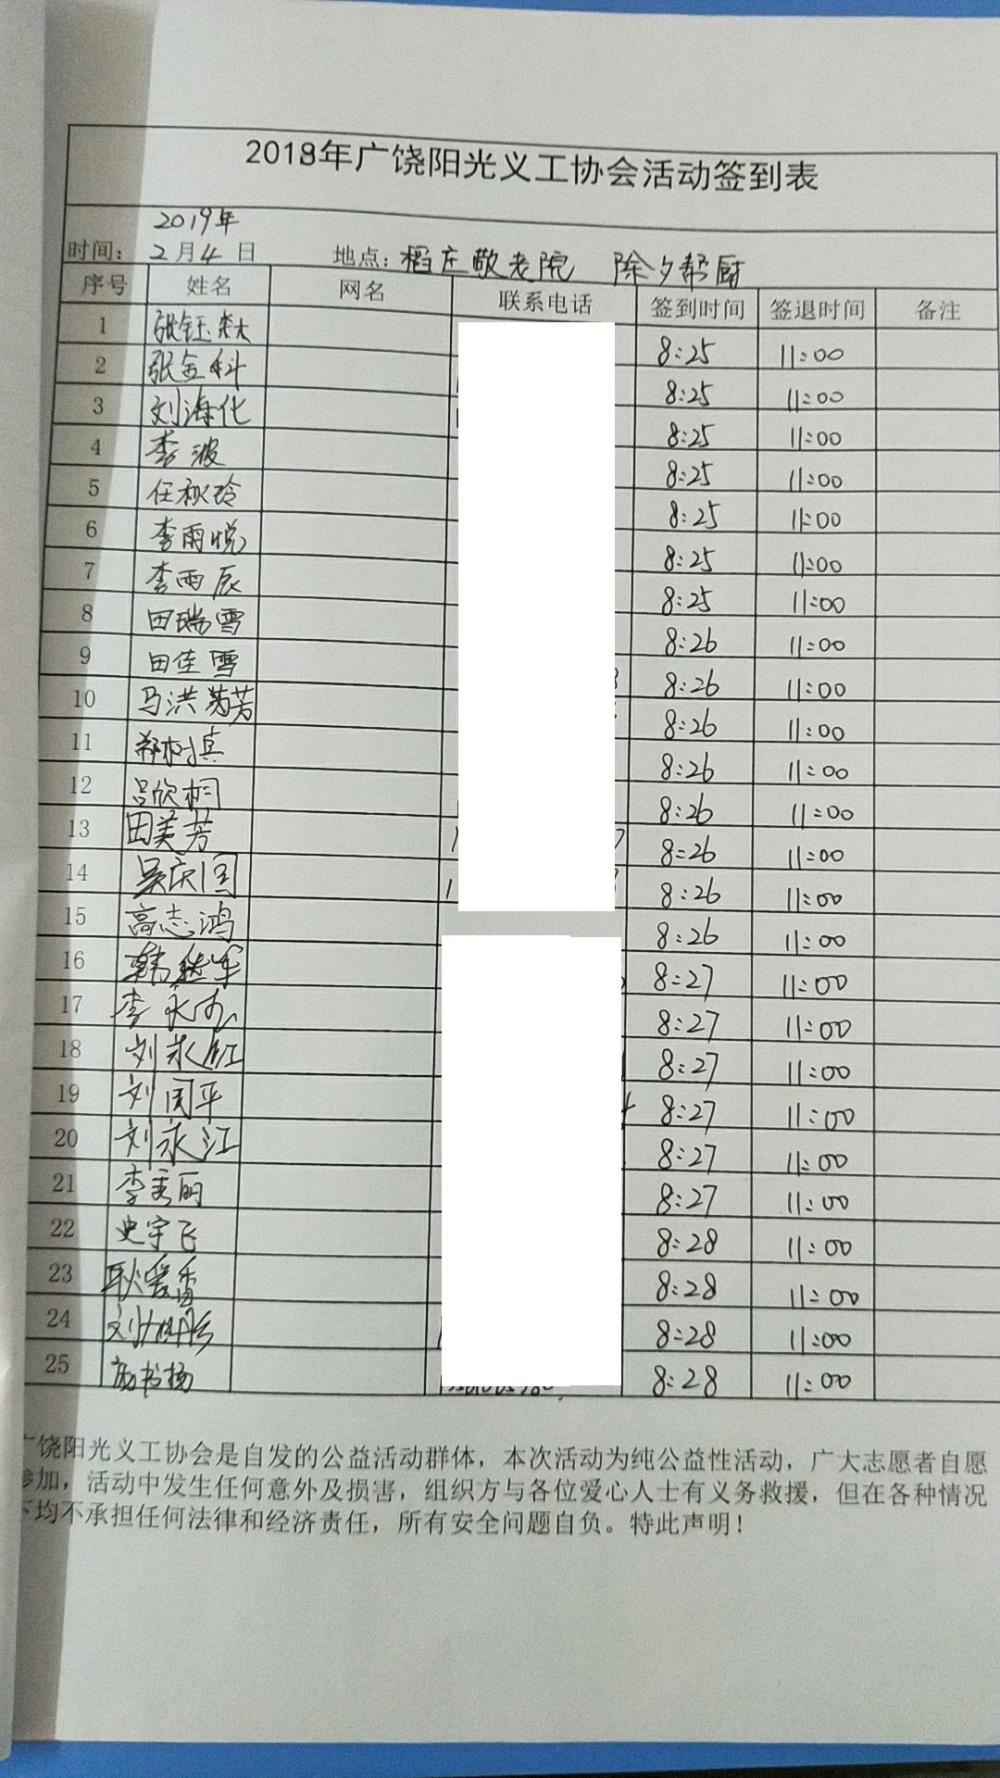 2018年广饶阳光义工协会活动签到表
2019年
时间： 2月4日 地点：稻庄敬老院 除夕帮厨
序号 姓名 网名 联系电话 签到时间 签退时间 备注
1 张钰 8:25 11:00
2 张金科 8:25 11:00
3 刘海化 8:25 11:00
4 李波 8:25 11:00
5 任秋玲 8:25 11:00
6 李雨悦 8:25 11:00
7 李雨辰 8:25 11:00
8 田瑞雪 8:26 11:00
9 田佳雪 8:26 11:00
10 马洪芳 8:26 11:00
11 郑树真 8:26 11:00
12 吕欣桐 8:26 11:00
13 田美芳 8:26 11:00
14 吴庆国 8:26 11:00
15 高志鸿 8:26 11:00
16 韩继军 8:27 11:00
17 李永 8:27 11:00
18 刘永红 8:27 11:00
19 刘国平 8:27 11:00
20 刘永江 8:27 11:00
21 李秀丽 8:27 11:00
22 史宇飞 8:28 11:00
23 耿爱香 8:28 11:00
24 刘 8:28 11:00
25 书扬 8:28 11:00
广饶阳光义工协会是自发的公益活动群体，本次活动为纯公益性活动，广大志愿者自愿
参加，活动中发生任何意外及损害，组织方与各位爱心人士有义务救援，但在各种情况
下均不承担任何法律和经济责任，所有安全问题自负。特此声明！